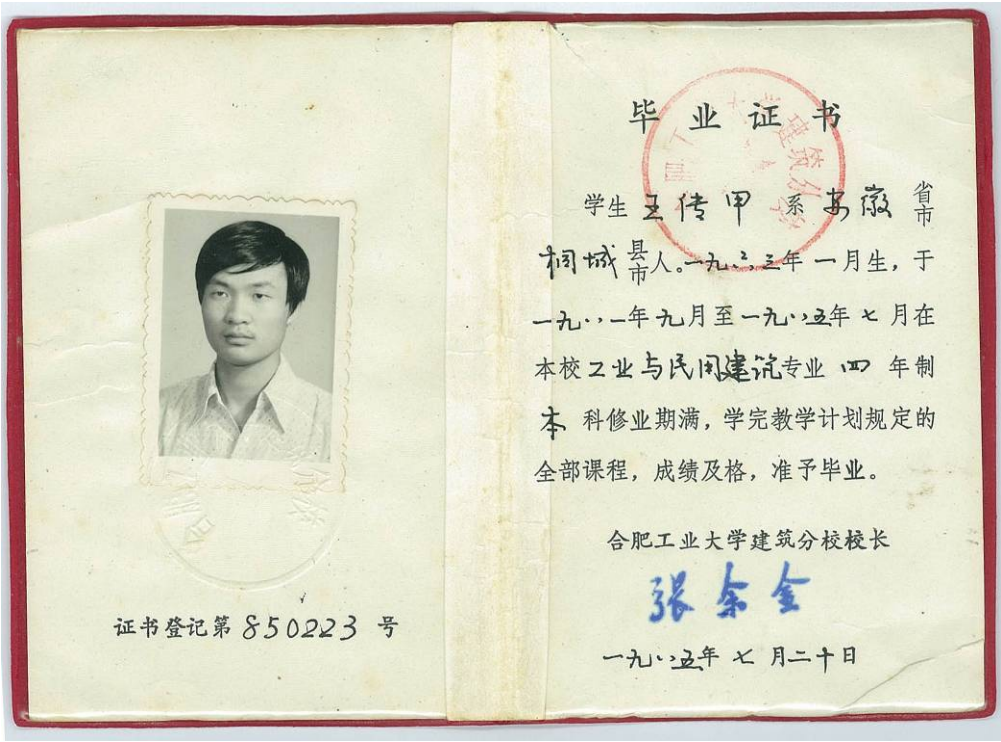 证书登记第850223号
毕业证书
学生王传甲系安徽省市
桐城县市人。一九六三年一月生，于
一九八一年九月至一九八五年七月在
本校工业与民用建筑专业四年制
本科修业期满，学完教学计划规定的
全部课程，成绩及格，准予毕业。
合肥工业大学建筑分校校长
张余金
一九八五年七月二十日